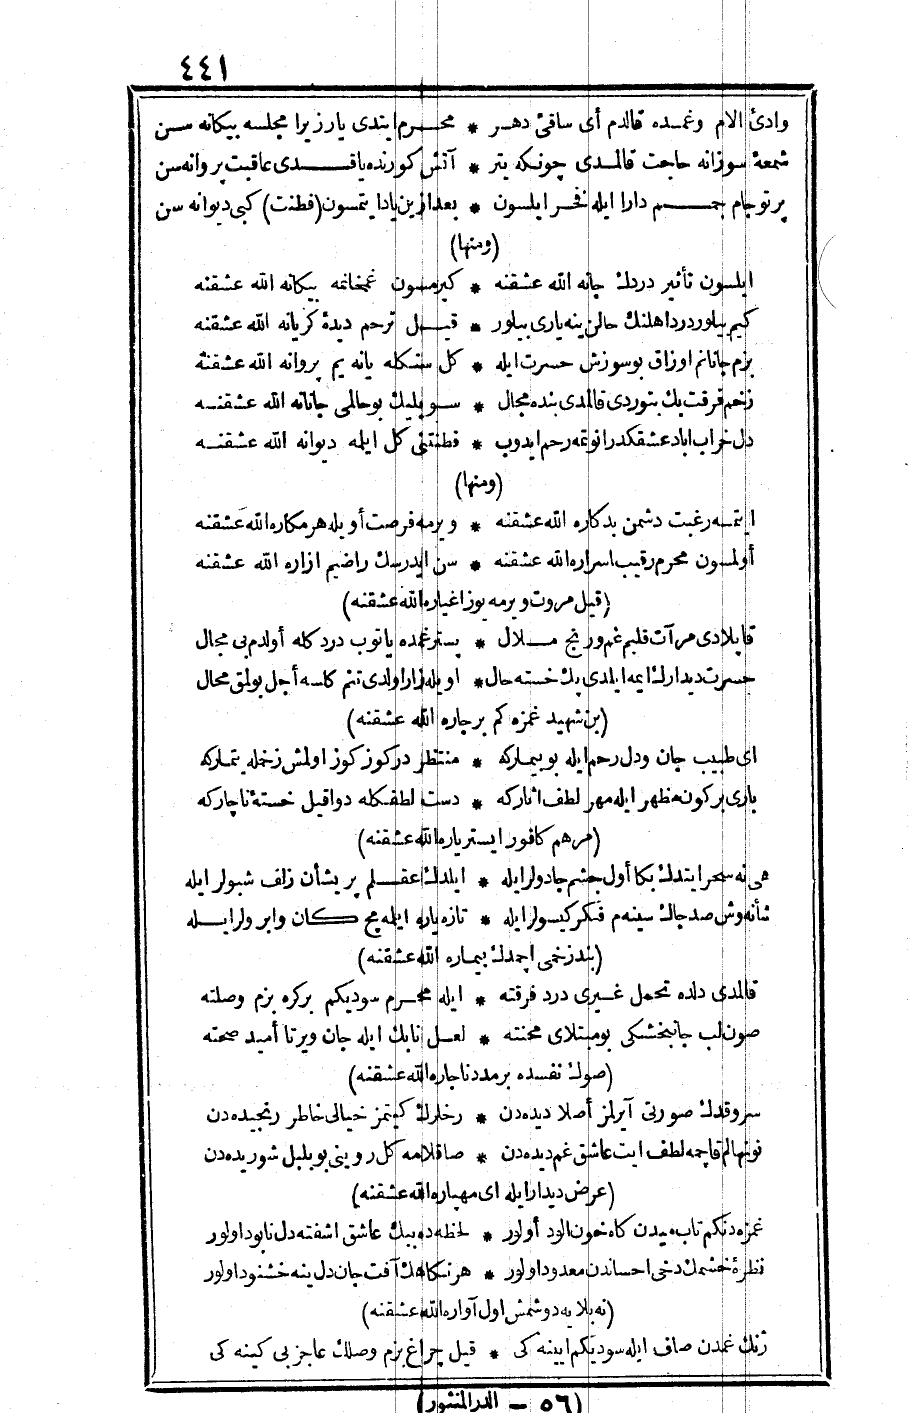 ٤٤١
وادئ الام وغمده قالدم أى ساقئ دهر * محرم ايتدى يار زيرا مجلسه بيكانه سن
شمعهٔ سوزانه حاجت قالمدى چونكه يتر * آتش كورنده ياقدى عاقبت پروانه سن
پرتو جام جم دارا ايله فخر ايلسون * بعد ازين يادا يتمسون (فطنت) كبى ديوانه سن
(ومنها)
ايلسون تأثير دردك جانه الله عشقنه * كيرمسون غمخانمه بيكانه الله عشقنه
كيم بيلور درد اهلنك حالن ينه يارى بيلور * قيل ترحم ديدهٔ كريانه الله عشقنه
بزم جانانم اوزاق بوسوزش حسرت ايله * كل سنكله يانه يم پروانه الله عشقنه
زخم فرقت پك بتوردى قالمدى بنده مجال * سويليك بو حالمى جانانه الله عشقنه
دل خراب اباد عشقكدر انوتمه رحم ايدوب * فطنتئى كل ايلمه ديوانه الله عشقنه
(ومنها)
ايتمه رغبت دشمن بدكاره الله عشقنه * ويرمه فرصت أويله هر مكاره الله عشقنه
أولمسون محرم رقيب اسراره الله عشقنه * سن ايدرسك راضيم ازاره الله عشقنه
(قيل مروت ويرمه يوز اغياره الله عشقنه)
قاپلادى مرآت قلبم غم ورنج ملال * بستر غمده ياتوب دردكله أولدم بى مجال
حسرت ديدارك ايمه ايلدى پك خسته حال * اويله زار اولدى تنم كلسه أجل بولمق محال
(بن شهيد غمزه كم بر جاره الله عشقنه)
اى طبيب جان ودل رحم ايله بو بيماركه * منتظر در كوز كوز اولمش زخمله يتماركه
بارى بر كون مظهر ايله مهر لطف اثاركه * دست لطفكله دوا قيل خستهٔ ناچاركه
(مرهم كافور ايستر ياره الله عشقنه)
هى نه سحر ايتدك بكا أول چشم جادولر ايله * ايلدك عقلم پريشأن زلف شبولر ايله
شأنه وش صد چاك سينه م فكر كيسولر ايله * تازه ياره ايلمه مچكان وابرولر ايله
(بند زخمى اچمدك بيماره الله عشقنه)
قالمدى دلده تحمل غيرى درد فرقته * ايله محرم سوديكم بركره بزم وصلته
صون لب جانبخشكى بو مبتلاى محنته * لعل نابك ايله جان ويرتا أميد صحته
(صوك نفسده بر مدد ناچاره الله عشقنه)
سروقدك صورتى آيرلمز أصلا ديده دن * رخلرك كيتمز خيالى خاطر رنجيده دن
نونهالم قاچمه لطف ايت عاشق غم ديده دن * صاقلامه كل رويني بو بلبل شوريده دن
(عرض ديدار ايله اى مهپاره الله عشقنه)
غمزه دنكم تاب ميدن كاه خون الود أولور * لحظه ده بيك عاشق اشفته دل نابود اولور
نظرهٔ خشمك دخى احساندن معدود اولور * هر نكاهك آفت جان دل ينه خشنود اولور
(نه بلايه دوشمش اول آواره الله عشقنه)
ژنك غمدن صاف ايله سوديكم ايينه كى * قيل چراغ بزم وصلك عاجز بى كينه كى
(٥٦ – الدر المنثور)